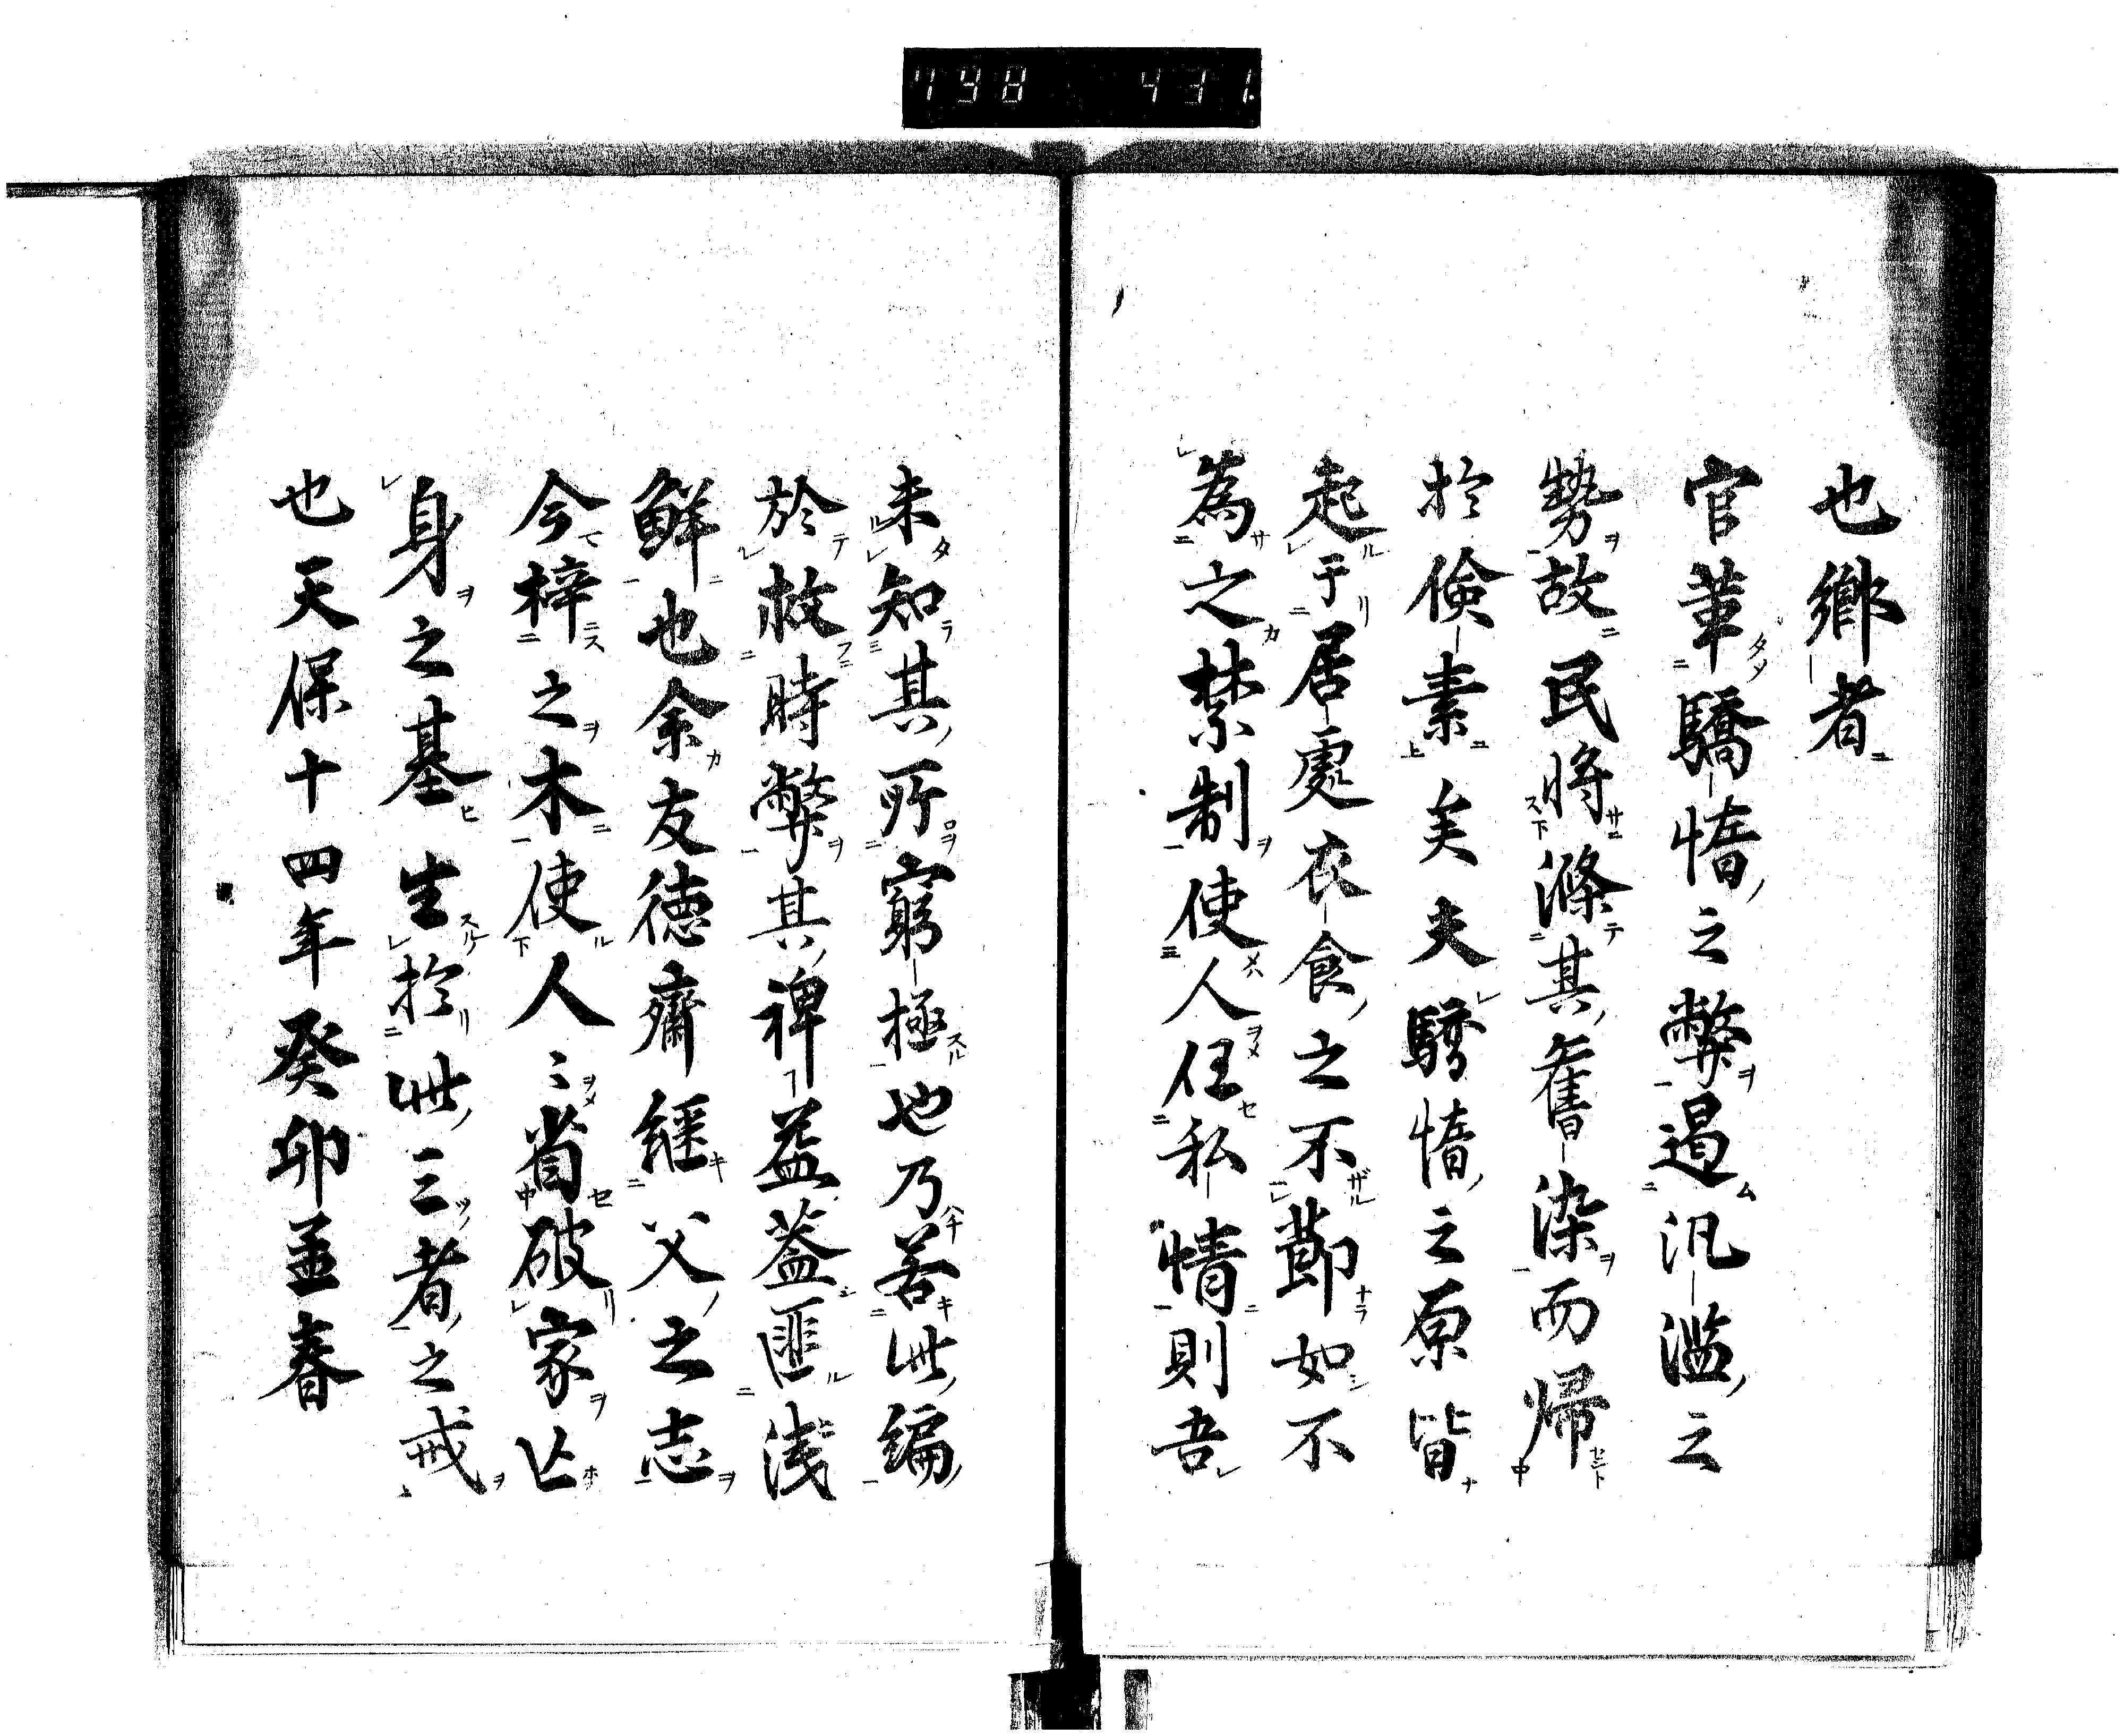 798 431
也鄉者
官革驕惰之弊遏汎濫之
勢故民將滌其舊染而帰
於儉素矣夫驕惰之原皆
起于居處衣食之不節如不
為之禁制使人任私情則吾
未知其所窮極也乃若此編
於救時弊其裨益蓋匪浅
鮮也余友徳齋継父之志
今梓之木使人〻省破家亡
身之基生於此三者之戒
也天保十四年癸卯孟春